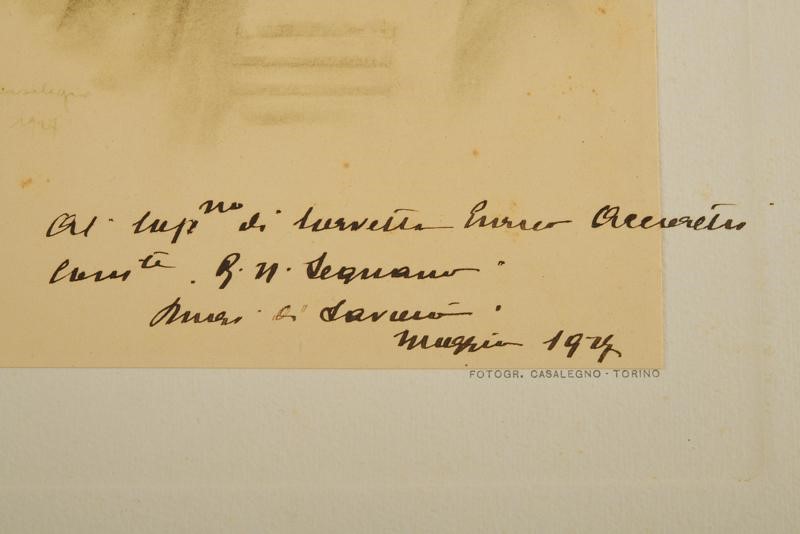 1927
Al Cap.no di Corvetta Enrico Accorretti
Com.te R. N. Legnano
di Savoia
Maggio 1927
FOTOGR. CASALEGNO - TORINO